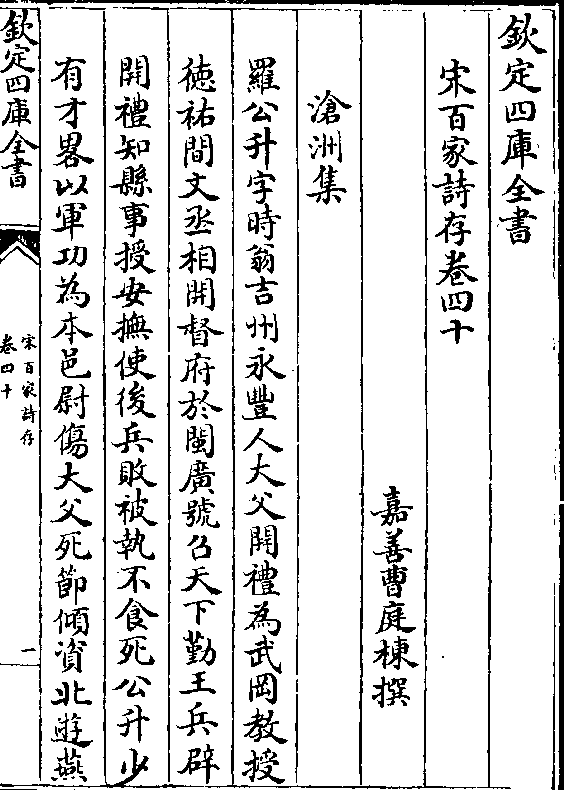 欽定四庫全書
宋百家詩存卷四十
嘉善曹庭棟撰
滄洲集
羅公升字時翁吉州永豐人大父開禮為武岡教授
徳祐間文丞相開督府於閩廣號召天下勤王兵辟
開禮知縣事授安撫使後兵敗被執不食死公升少
有才畧以軍功為本邑尉傷大父死節傾資北遊燕
欽定四庫全書
宋百家詩存
卷四十
一